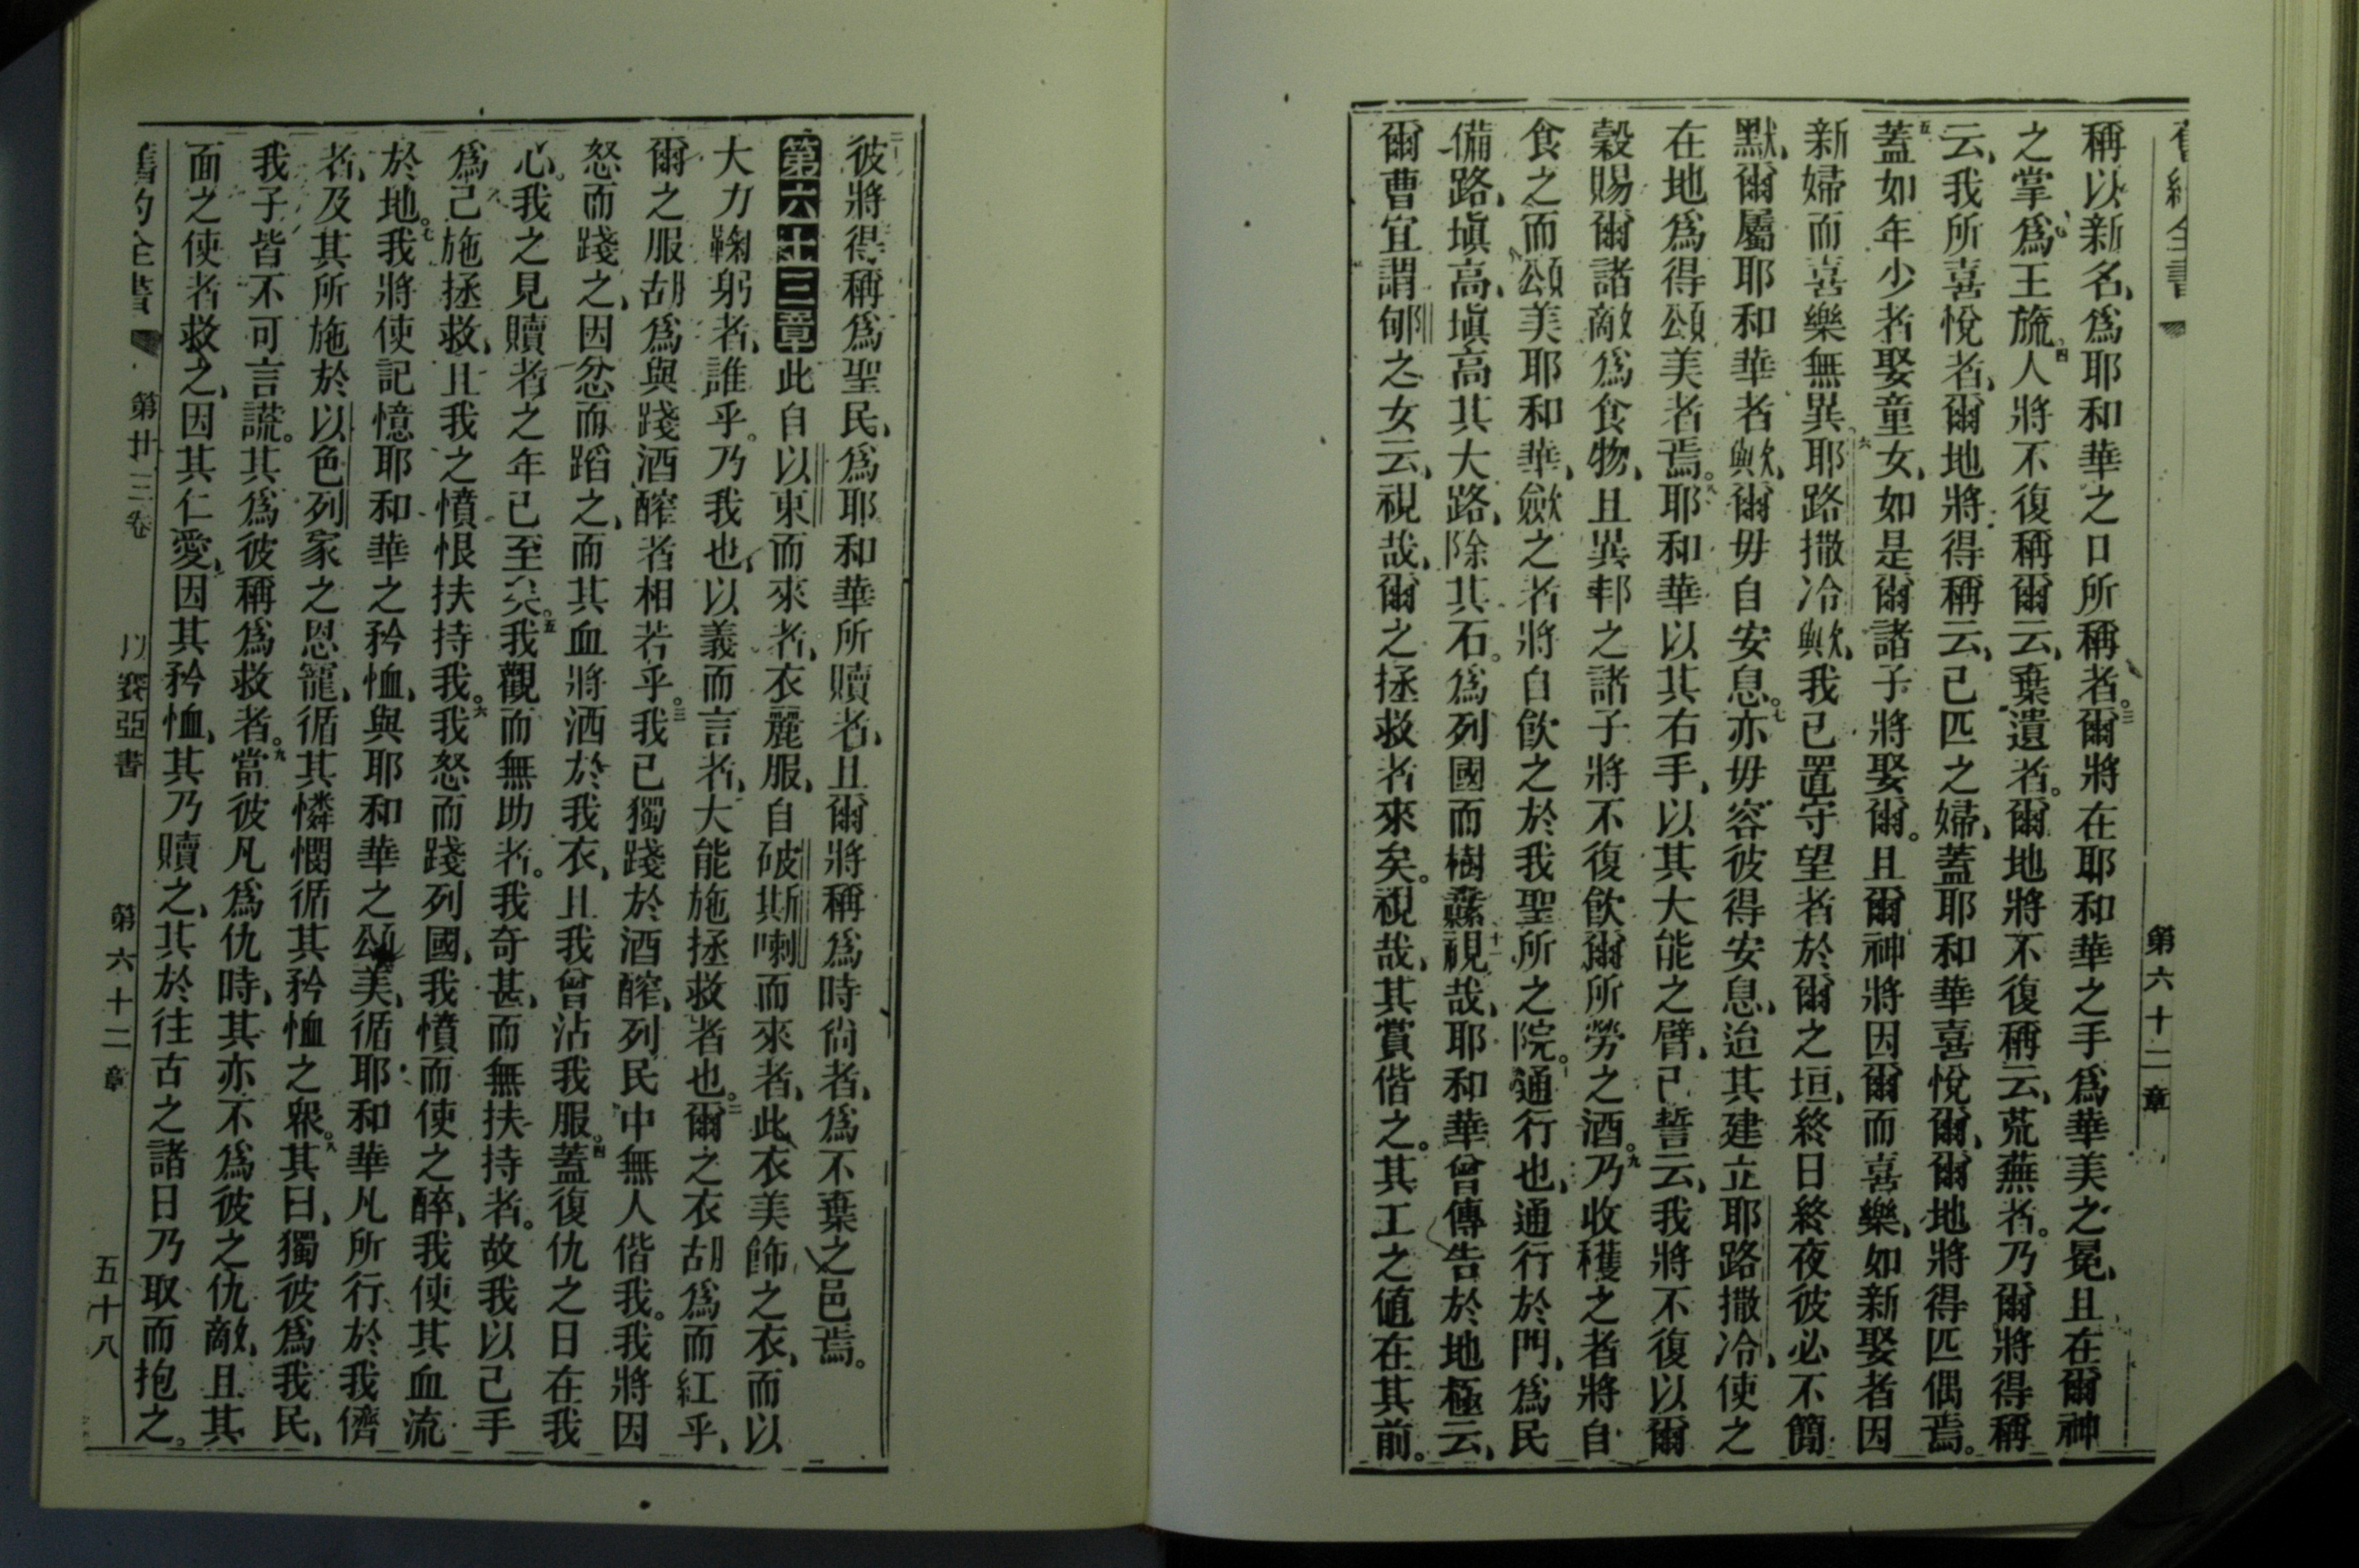 舊約全書
第六十二章
稱以新名、爲耶和華之口所稱者。三爾將在耶和華之手爲華美之冕、且在爾神
之掌爲王旒。四人將不復稱爾云、棄遺者。爾地將不復稱云、荒蕪者。乃爾將得稱
云、我所喜悅者、爾地將得稱云、已匹之婦、蓋耶和華喜悅爾、爾地將得匹偶焉。
五蓋如年少者娶童女、如是爾諸子將娶爾。且爾神將因爾而喜樂、如新娶者因
新婦而喜樂無異。六耶路撒冷歟、我已置守望者於爾之垣、終日終夜彼必不簡
默、爾屬耶和華者歟、爾毋自安息。七亦毋容彼得安息、迨其建立耶路撒冷、使之
在地爲得頌美者焉。八耶和華以其右手、以其大能之臂、已誓云、我將不復以爾
穀賜爾諸敵爲食物、且異邦之諸子將不復飲爾所勞之酒。九乃收穫之者將自
食之而頌美耶和華、斂之者將自飲之於我聖所之院。十通行也、通行於門、爲民
備路、塡高、塡高其大路、除其石。爲列國而樹纛。十一視哉、耶和華曾傳告於地極云、
爾曹宜謂郇之女云、視哉、爾之拯救者來矣。視哉、其賞偕之。其工之値在其前。
十二彼將得稱爲聖民、爲耶和華所贖者、且爾將稱爲時尙者、爲不棄之邑焉。
第六十三章 此自以東而來者、衣麗服、自破斯喇而來者、此衣美飾之衣、而以
大力鞠躬者、誰乎。乃我也、以義而言者、大能施拯救者也。二爾之衣胡爲而紅乎、
爾之服胡爲與踐酒醡者相若乎。三我已獨踐於酒醡、列民中無人偕我。我將因
怒而踐之、因忿而蹈之、而其血將洒於我衣、且我曾沾我服。四蓋復仇之日在我
心。我之見贖者之年已至矣。五我觀而無助者。我奇甚、而無扶持者。故我以己手
爲己施拯救、且我之憤恨扶持我。六我怒而踐列國、我憤而使之醉、我使其血流
於地。七我將使記憶耶和華之矜恤、與耶和華之頌美、循耶和華凡所行於我儕
者、及其所施於以色列家之恩寵、循其憐憫循其矜恤之衆。八其曰、獨彼爲我民、
我子皆不可言謊。其爲彼稱爲救者。九當彼凡爲仇時、其亦不爲彼之仇敵、且其
面之使者救之、因其仁愛、因其矜恤、其乃贖之、其於往古之諸日乃取而抱之。
舊約全書 第廿三卷 以賽亞書 第六十二章 五十八